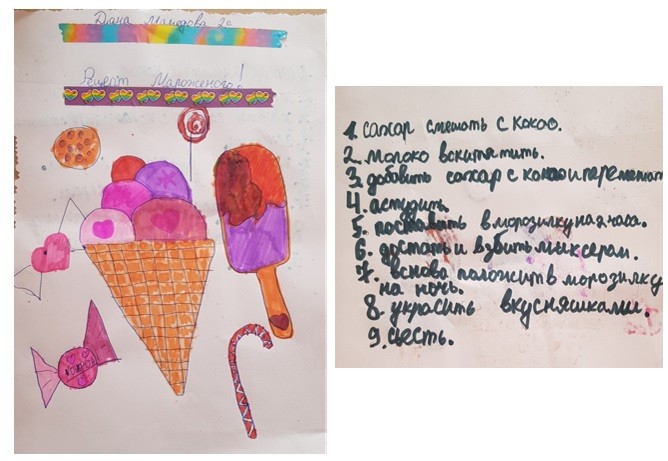 Дана Мамедова 2а
Рицепт Мароженого!
1. сахар смешать с какао.
2. молоко вскипятить.
3. добавить сахар с какао и перемешать
4. астудить.
5. поставить в морозилку на 2 часа.
6. достать и взбить миксерам.
7. вснова паложить в морозилку
на ночь.
8. украсить вкусняшками.
9. сьесть.